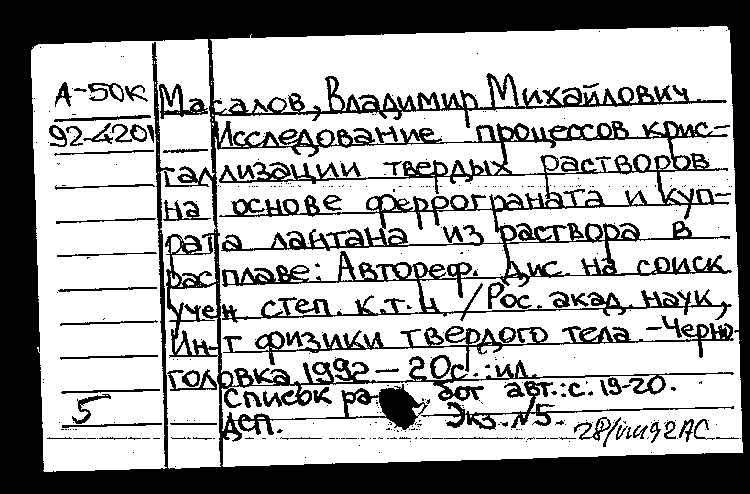 А-50к Масалов, Владимир Михайлович
92-4201 Исследование процессов крис-
таллизации твердых растворов
на основе феррограната и куп-
рата лантана из раствора в
расплаве: Автореф. Дис. на соиск
учен степ. к.т.н /Рос. акад. наук,
Ин-т физики твердого тела.-Черно-
головка, 1992 – 20с.:ил.
Список ра- бот авт.:с. 19-20.
5 ДСП. Экз. №5.
28/VIII92АС